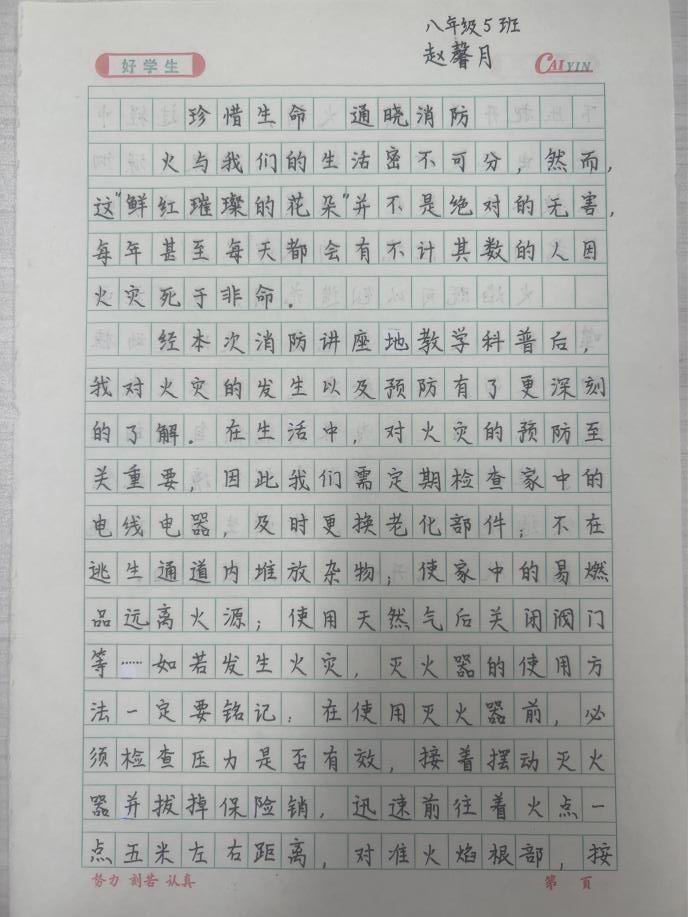 八年级5班
赵馨月
好学生
CAIYIN
珍惜生命 通晓消防
火与我们的生活密不可分，然而，
这“鲜红璀璨的花朵”并不是绝对的无害，
每年甚至每天都会有不计其数的人因
火灾死于非命．
经本次消防讲座地教学科普后，
我对火灾的发生以及预防有了更深刻
的了解．在生活中，对火灾的预防至
关重要，因此我们需定期检查家中的
电线电器，及时更换老化部件；不在
逃生通道内堆放杂物；使家中的易燃
品远离火源；使用天然气后关闭阀门
等……如若发生火灾，灭火器的使用方
法一定要铭记：在使用灭火器前，必
须检查压力是否有效，接着摆动灭火
器并拔掉保险销，迅速前往着火点一
点五米左右距离，对准火焰根部，按
努力 刻苦 认真
第 页